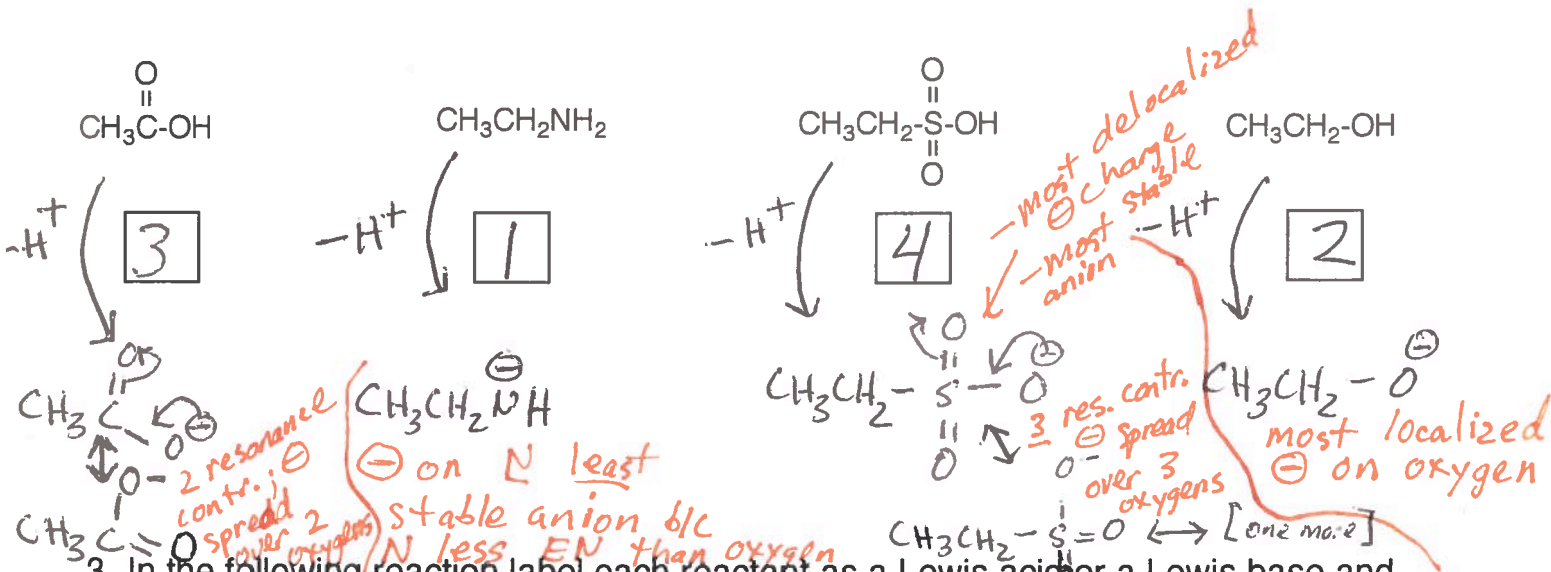 O
||
CH₃C-OH
CH₃CH₂NH₂
O
||
CH₃CH₂-S-OH
||
O
CH₃CH₂-OH
-H⁺
3
-H⁺
1
-H⁺
4
-H⁺
2
- most delocalized
⊖ charge
- most stable
anion
O
||
CH₃ C - O ⊖
O-
CH₃ C = O
2 resonance
contr.; ⊖
spread
over 2
oxygens
⊖
CH₃CH₂NH
⊖ on N least
stable anion b/c
N less EN than oxygen
O
||
CH₃CH₂-S-O ⊖
||
O
3 res. contr.
⊖ spread
over 3
oxygens
O-
CH₃CH₂-S=O ↔ [one more]
||
⊖
CH₃CH₂-O
most localized
⊖ on oxygen
3. In the following reaction label each reactant as a Lewis acid or a Lewis base and